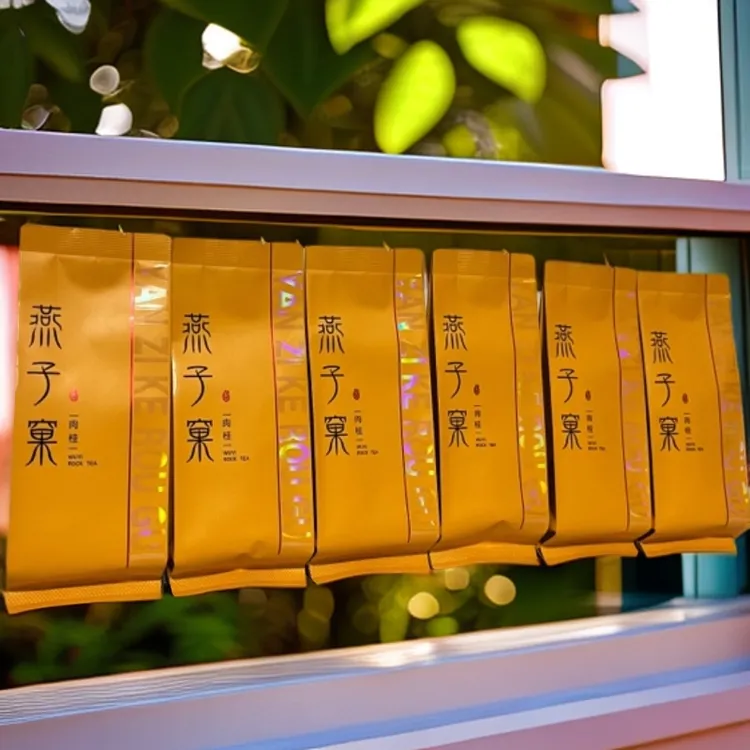 燕子窠
一肉桂一
WUYI
ROCK TEA
YAN ZI KE ROU G
燕子窠
一肉桂一
WUYI
ROCK TEA
YAN ZI KE ROU
燕子窠
一肉桂一
WUYI
ROCK TEA
YAN ZI KE ROU G
燕子窠
一肉桂一
WUYI
ROCK TEA
燕子窠
一肉桂一
WUYI
ROCK TEA
燕子窠
一肉桂一
WUYI
ROCK TEA